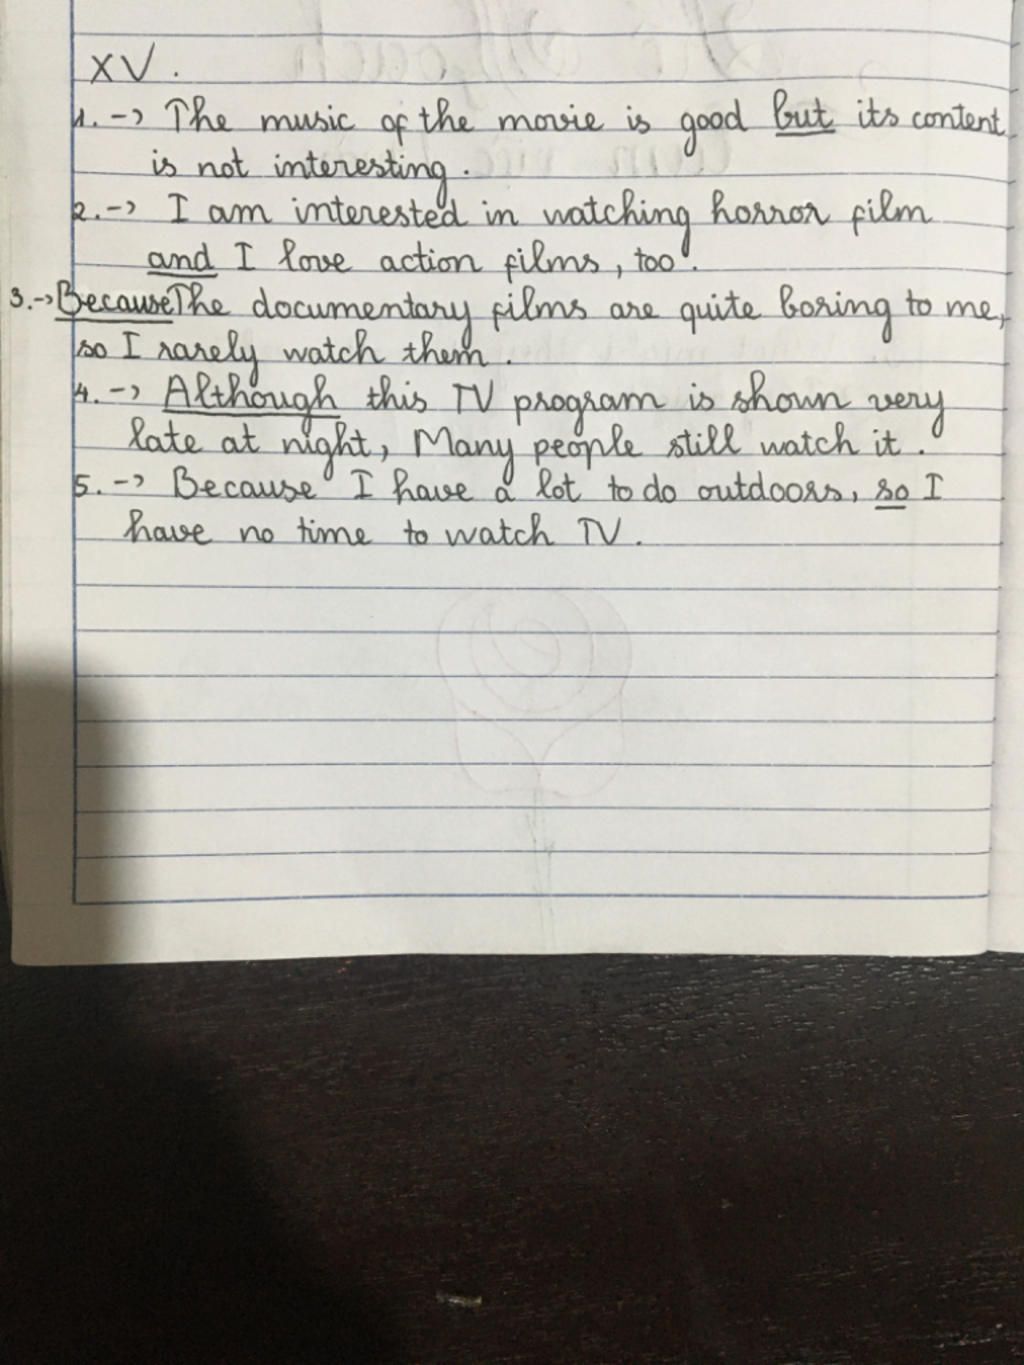 XV.
1. -> The music of the movie is good but its content
is not interesting.
2. -> I am interested in watching horror film
and I love action films, too.
3. -> Because The documentary films are quite boring to me,
so I rarely watch them.
4. -> Although this TV program is shown very
late at night, Many people still watch it.
5. -> Because I have a lot to do outdoors, so I
have no time to watch TV.